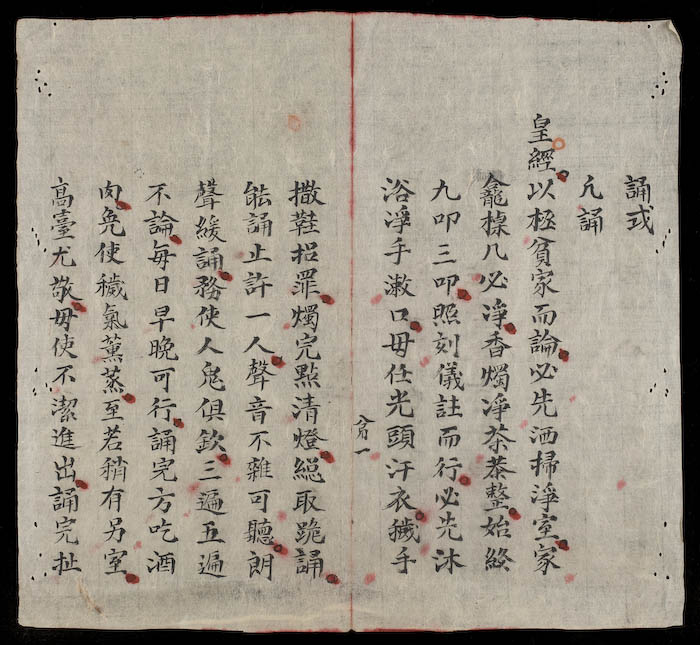 誦式
凢誦
皇經以極貧家而論必先洒掃淨室家
龕槕几必凈香燭凈茶恭整始終
九叩三叩照刻儀註而行必先沐
浴淨手漱口毋任光頭汗衣穢手
撒鞋招罪燭完點清燈緫取跪誦
能誦止許一人聲音不雜可聽朗
聲緩誦務使人鬼俱欽三遍五遍
不論每日早晚可行誦完方吃酒
肉免使穢氣薰蒸至若稍有另室
高臺尤敬毋使不潔進出誦完扯